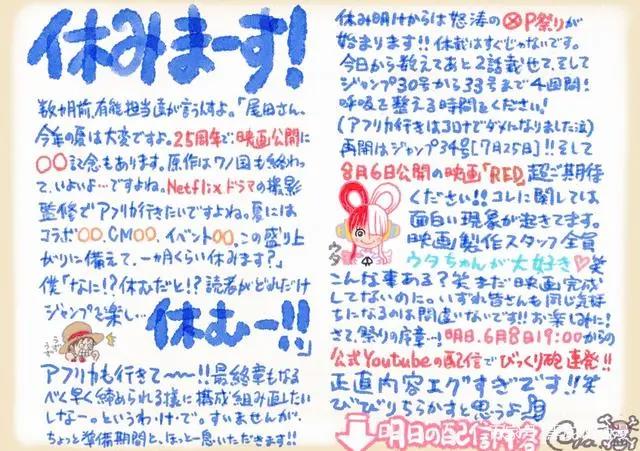 休みまーす!
数ヶ月前、有能担当直が言うんすよ。「尾田さん、
今年の夏は大変ですよ。25周年で、映画公開に
〇〇記念もあります。原作はワノ国も終わっ
て、いよいよ…ですよね。Netflixドラマの撮影
監修でアフリカ行きたいですよね。夏には
コラボ〇〇、CM〇〇、イベント〇〇。この盛り上
がりに備えて、一ヶ月くらい休みます?」
僕「なに!?休むだと!?読者がどれだけ
ジャンプを楽し…
休むー!!」
アフリカも行きて〜〜!!最終章もなる
べく早く締められる様に構成組み直したい
しなー。というわ・け・で。すいませんが、
ちょっと準備期間と、ほっと一息いただきます!!
休み明けからは怒涛の
P祭りが
始まります!!休載はすぐじゃないです。
今日から数えてあと2話載せて、そして
ジャンプ30号から33号まで4週間!
呼吸を整える時間をください!
(アフリカ行きはコロナでダメになりました泣)
再開はジャンプ34号[7月25日]!!そして
8月6日公開の映画「RED」超ご期待
ください!!コレに関しては
面白い現象が起きてます。
映画製作スタッフ全員
ウタちゃんが大好き♡笑
ウタ
こんな事ある?笑 まだ映画完成
してないのに。いずれ皆さんも同じ気持
ちになるのは間違いないです!!お楽しみに!
さて、祭りの序章…!明日、6月8日19:00からの
公式Youtubeの配信でびっくり砲連発!!
正直内容エグすぎです!!笑
びびりちらかすと思うよ
明日の配信内容